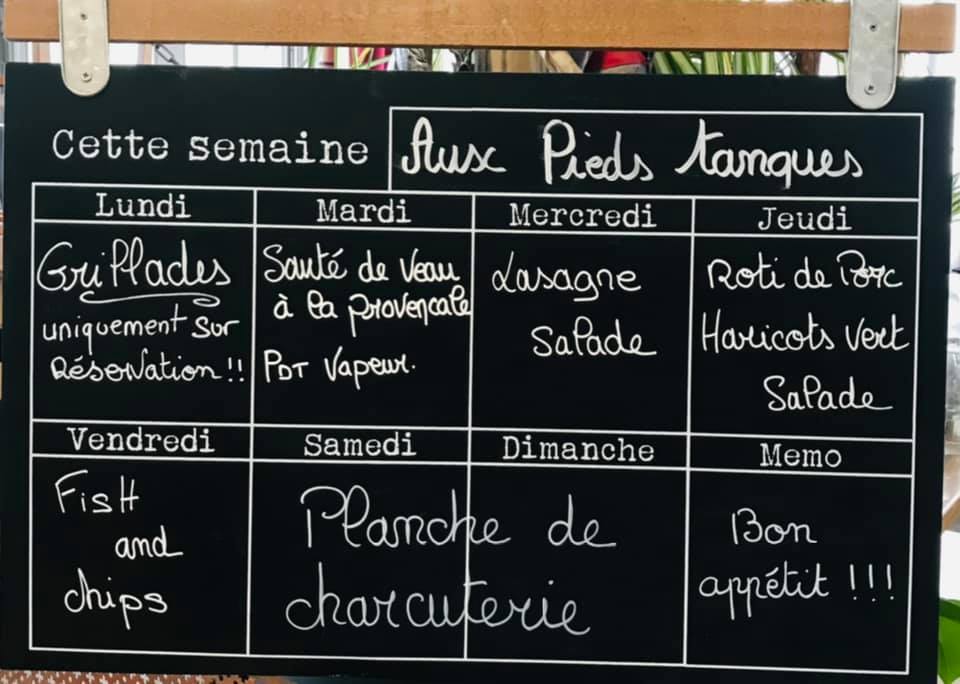 Cette semaine Aux Pieds tanques
Lundi
Grillades
uniquement Sur
Réservation !!
Mardi
Sauté de Veau
à la provençale
PDT Vapeur.
Mercredi
Lasagne
Salade
Jeudi
Roti de Porc
Haricots Vert
Salade
Vendredi
Fish
and
chips
Samedi
Dimanche
Planche de
charcuterie
Memo
Bon
appétit !!!